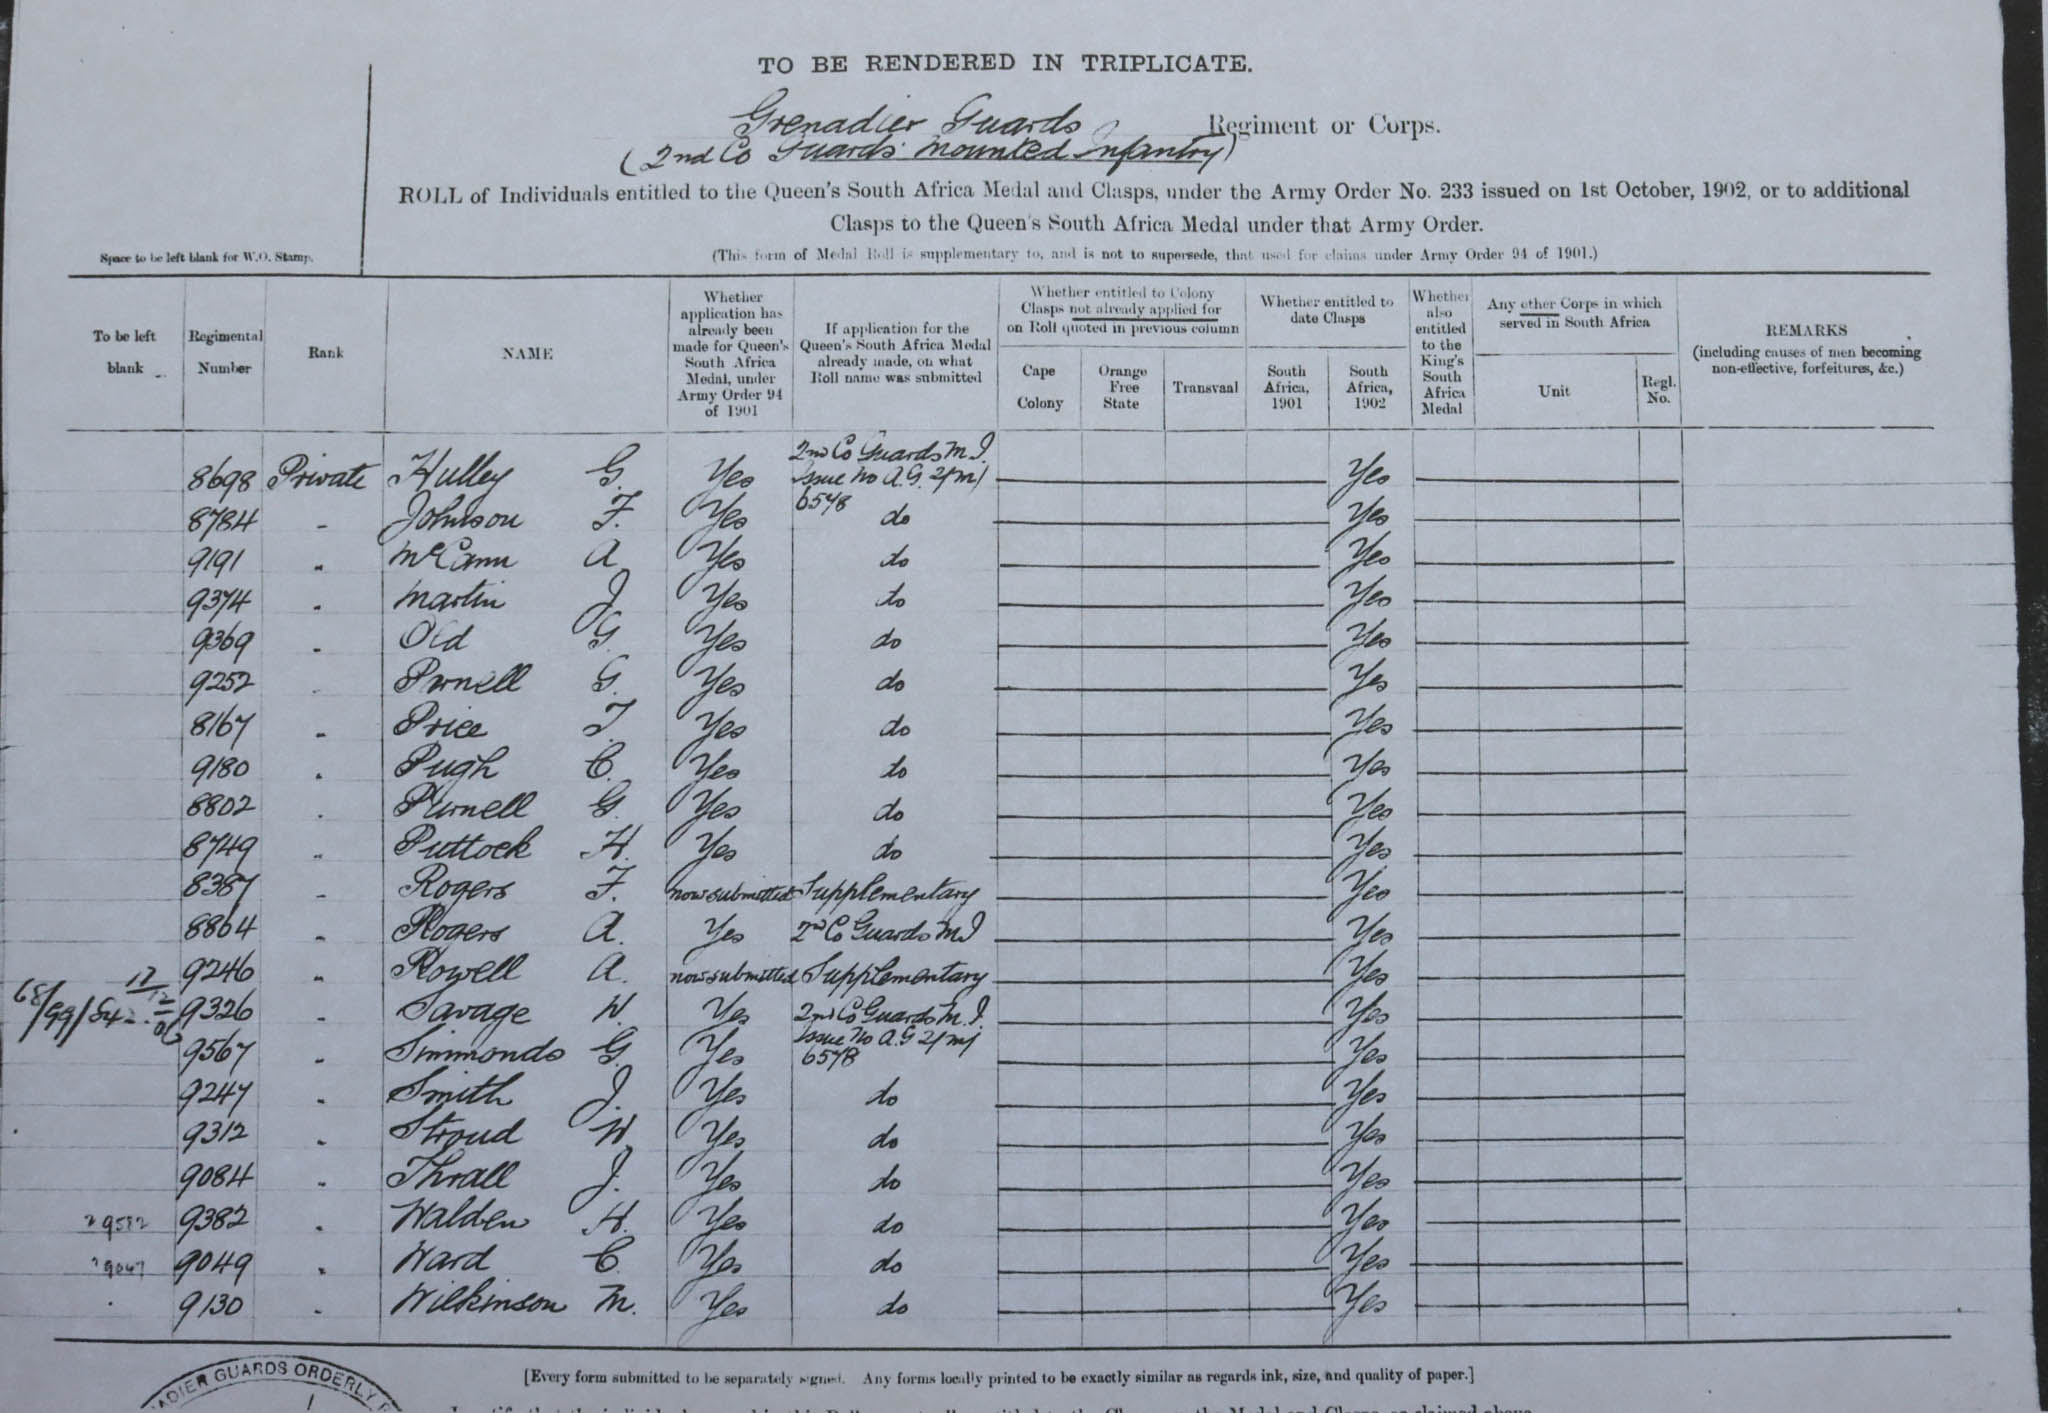 TO BE RENDERED IN TRIPLICATE.
Grenadier Guards Regiment or Corps.
(2nd Co Guards' Mounted Infantry)
ROLL of Individuals entitled to the Queen's South Africa Medal and Clasps, under the Army Order No. 233 issued on 1st October, 1902, or to additional
Clasps to the Queen's South Africa Medal under that Army Order.
Space to be left blank for W.O. Stamp.
(This form of Medal Roll is supplementary to, and is not to supersede, that used for claims under Army Order 94 of 1901.)
To be left blank
Regimental Number
Rank
NAME
Whether application has already been made for Queen's South Africa Medal, under Army Order 94 of 1901
If application for the Queen's South Africa Medal already made, on what Roll name was submitted
Whether entitled to Colony Clasps not already applied for on Roll quoted in previous column
Cape Colony
Orange Free State
Transvaal
Whether entitled to date Clasps
South Africa, 1901
South Africa, 1902
Whether also entitled to the King's South Africa Medal
Any other Corps in which served in South Africa
Unit
Regl. No.
REMARKS
(including causes of men becoming non-effective, forfeitures, &c.)
8698 Private Hulley G. Yes 2nd Co Guards M.I. Issue No A.G. 2/M/ 6578 Yes
8784 " Johnson F. Yes do Yes
9191 " McCann A Yes do Yes
9374 " Martin J Yes do Yes
9369 " Old G. Yes do Yes
9252 " Parnell G. Yes do Yes
8167 " Price T. Yes do Yes
9180 " Pugh C. Yes do Yes
8802 " Purnell G. Yes do Yes
8749 " Puttock H. Yes do Yes
8387 " Rogers F. now submitted Supplementary Yes
8864 " Rogers A. Yes 2nd Co Guards M I Yes
9246 " Rowell A. now submitted Supplementary Yes
68/99/842 9326 " Savage W. Yes 2nd Co Guards M.I. Yes
9567 " Simmonds G. Yes Issue No A.G 2/M/ 6578 Yes
9247 " Smith J. Yes do Yes
9312 " Stroud W. Yes do Yes
9084 " Thrall J. Yes do Yes
? 9582 9382 " Walden H. Yes do Yes
? 9047 9049 " Ward C. Yes do Yes
9130 " Wilkinson M. Yes do Yes
[Every form submitted to be separately signed. Any forms locally printed to be exactly similar as regards ink, size, and quality of paper.]
GUARDS ORDERLY